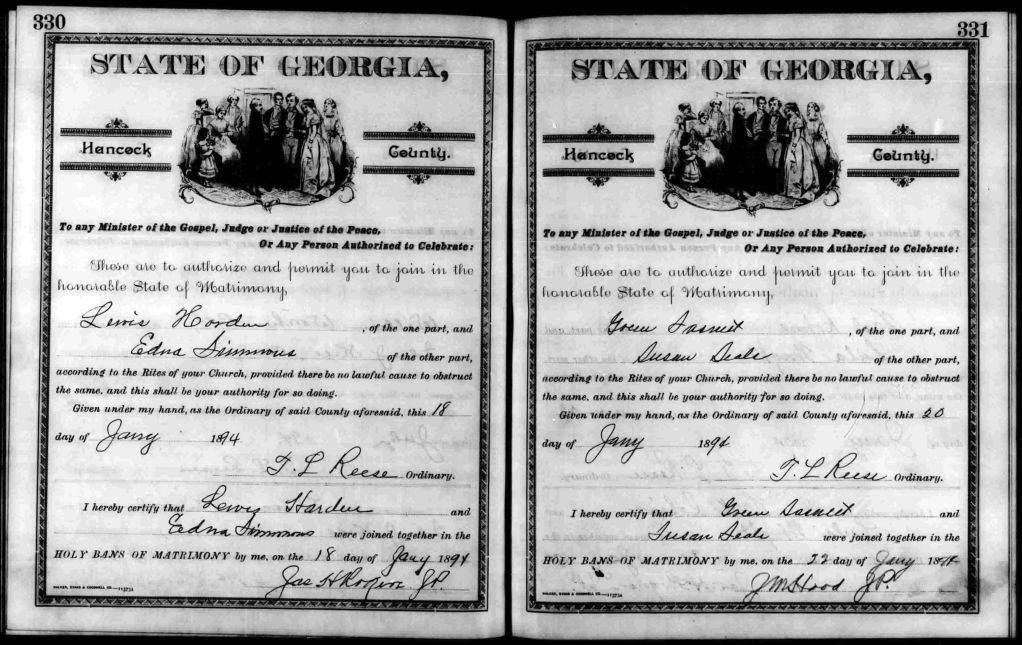 330
STATE OF GEORGIA,
Hancock County.
To any Minister of the Gospel, Judge or Justice of the Peace,
Or Any Person Authorized to Celebrate:
These are to authorize and permit you to join in the
honorable State of Matrimony,
Lewis Harden, of the one part, and
Edna Simmons of the other part,
according to the Rites of your Church, provided there be no lawful cause to obstruct
the same, and this shall be your authority for so doing.
Given under my hand, as the Ordinary of said County aforesaid, this 18
day of Jany 1894
T. L Reese Ordinary.
I hereby certify that Lewis Harden and
Edna Simmons were joined together in the
HOLY BANS OF MATRIMONY by me, on the 18 day of Jany 1894
Jas H J.P.
WALKER, EVANS & COGSWELL CO.—113734
331
STATE OF GEORGIA,
Hancock County.
To any Minister of the Gospel, Judge or Justice of the Peace,
Or Any Person Authorized to Celebrate:
These are to authorize and permit you to join in the
honorable State of Matrimony,
Green Sasnett, of the one part, and
Susan Seals of the other part,
according to the Rites of your Church, provided there be no lawful cause to obstruct
the same, and this shall be your authority for so doing.
Given under my hand, as the Ordinary of said County aforesaid, this 20
day of Jany 1894
T. L Reese Ordinary.
I hereby certify that Green Sasnett and
Susan Seals were joined together in the
HOLY BANS OF MATRIMONY by me, on the 22 day of Jany 1894
J M Hood J.P.
WALKER, EVANS & COGSWELL CO.—113734